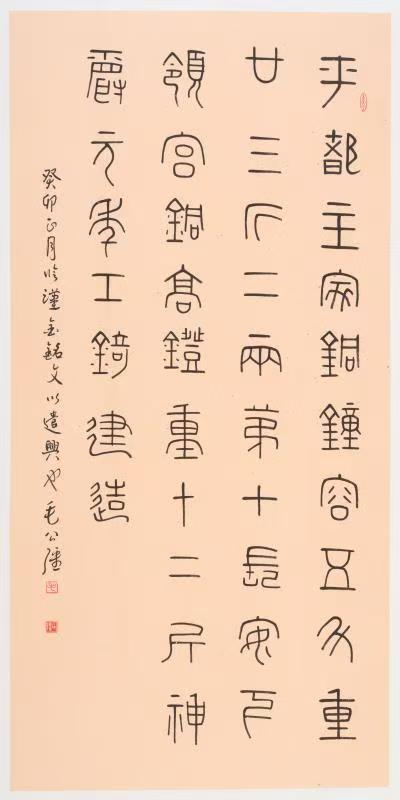 平都主家銅鐘容五斗重
廿三斤二兩第十長安下
領宮銅高鐙重十二斤神
爵元年工錡建造
癸卯正月臨漢金銘文以遣興也毛公彊